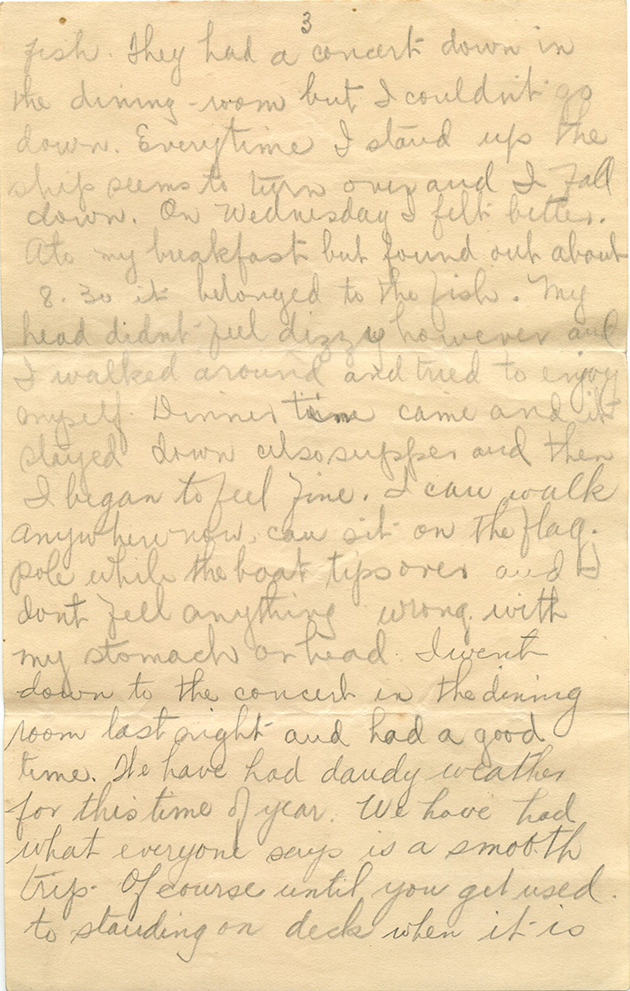 3
fish. They had a concert down in
the dining-room but I couldn't go
down. Everytime I stand up the
ship seems to turn over and I fall
down. On Wednesday I felt better.
Ate my breakfast but found out about
8.30 it belonged to the fish. My
head didnt feel dizzy however and
I walked around and tried to enjoy
myself. Dinner time came and it
stayed down also supper and then
I began to feel fine. I can walk
anywhere now, can sit on the flag-
pole while the boat tips over and I
dont fell anything wrong with
my stomach or head. I went
down to the concert in the dining
room last night and had a good
time. We have had dandy weather
for this time of year. We have had
what everyone says is a smooth
trip. Of course until you get used
to standing on deck when it is